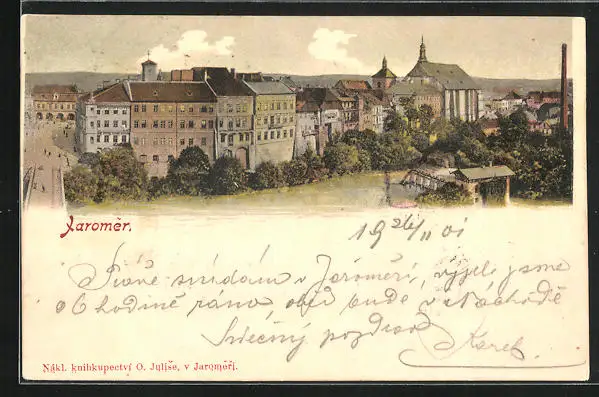 Jaroměř.
19 26/11 01
Právě snídám v Jároměři, vyjeli jsme
o 6 hodině ráno, oběd bude v Náchodě
Srdečný pozdrav Karel.
Nákl. knihkupectví O. Juliše, v Jaroměři.